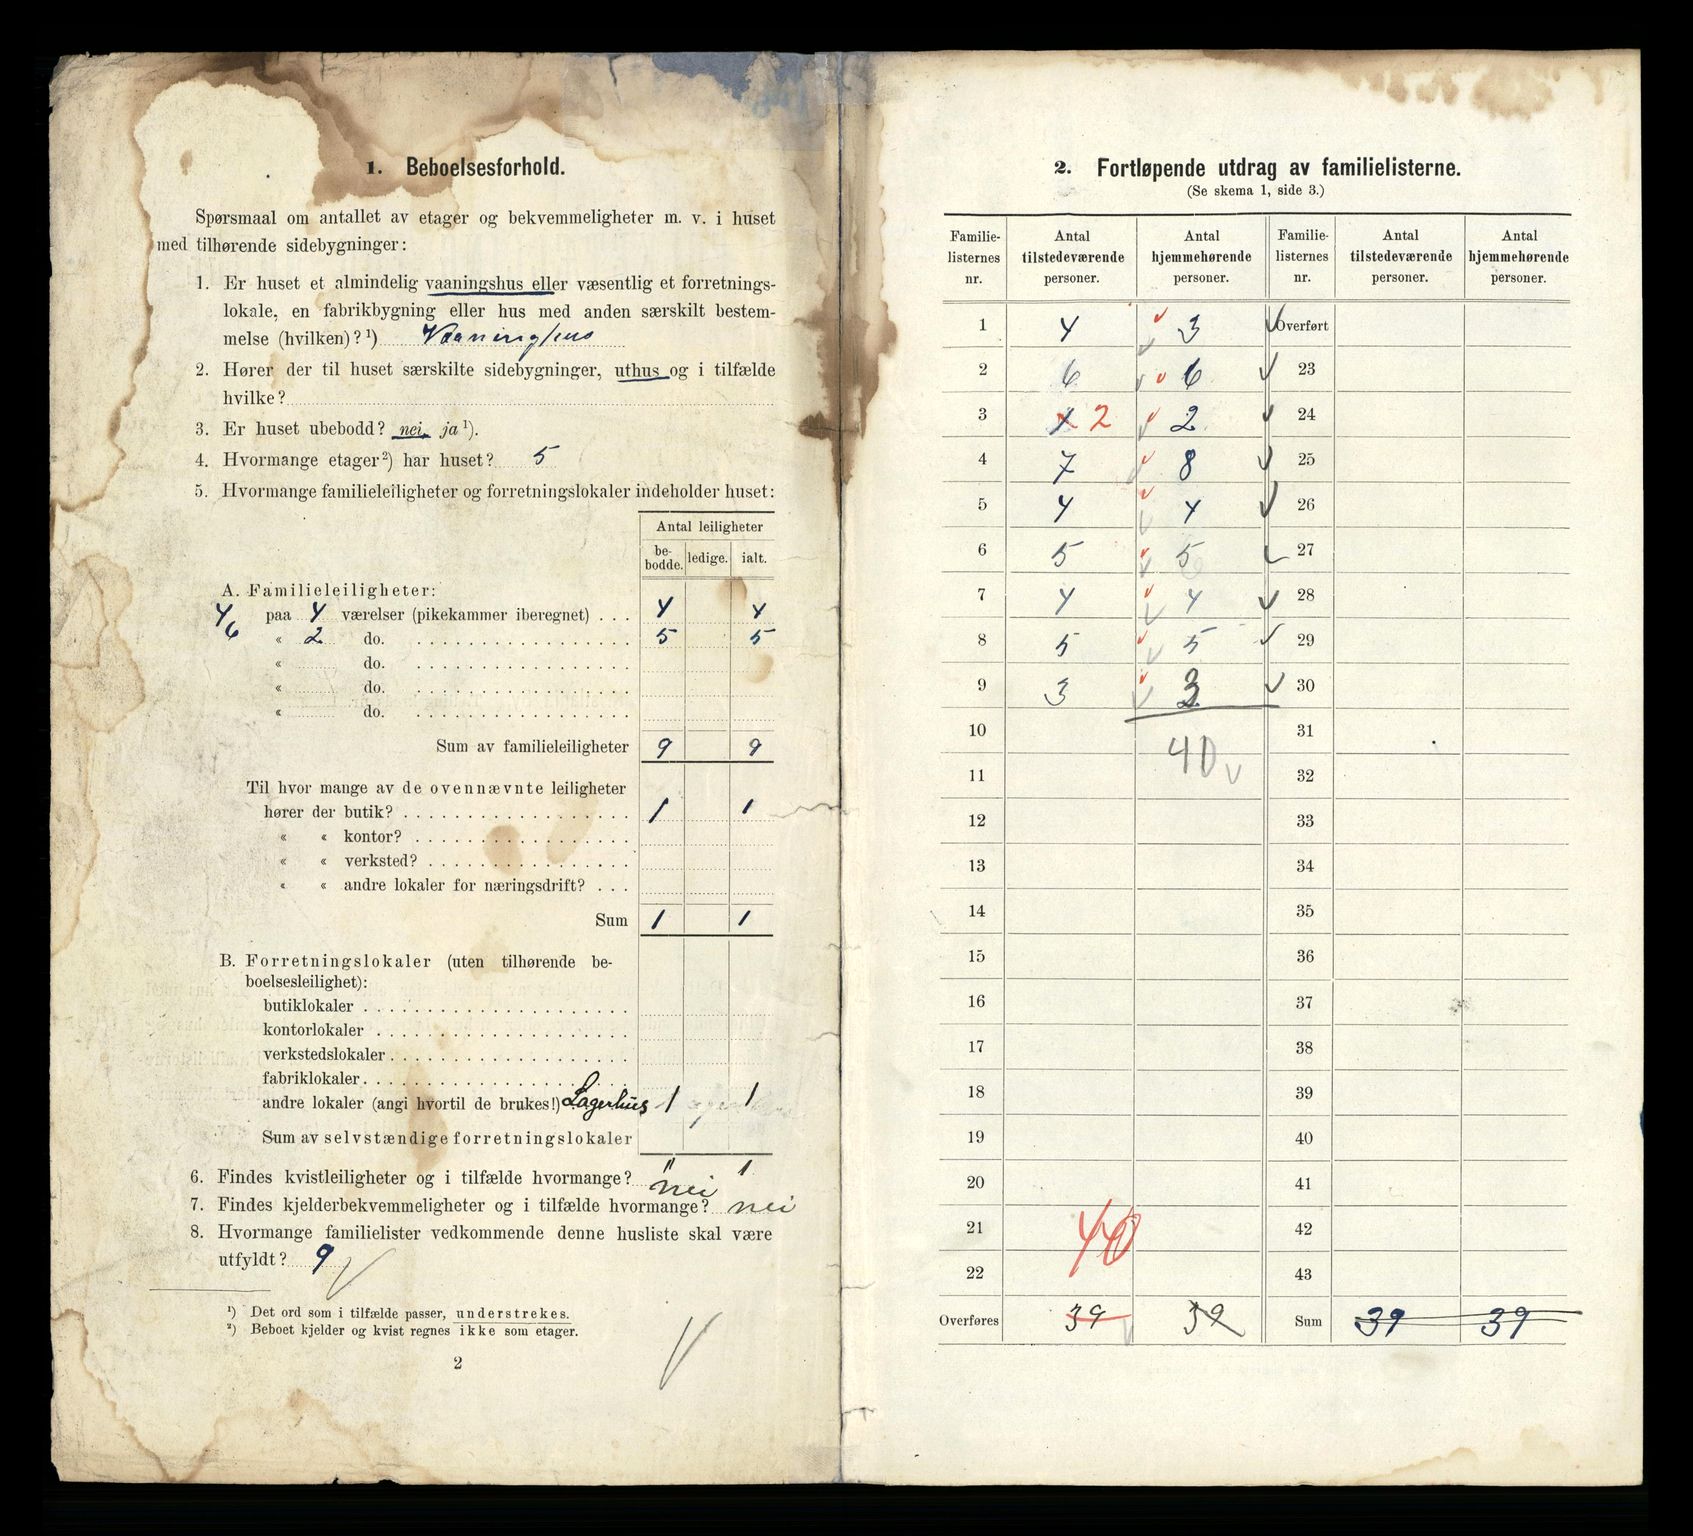 1. Beboelsesforhold.
Spørsmaal om antallet av etager og bekvemmeligheter m. v. i huset
med tilhørende sidebygninger:
1. Er huset et almindelig vaaningshus eller væsentlig et forretnings-
lokale, en fabrikbygning eller hus med anden særskilt bestem-
melse (hvilken)? ¹) Vaaninghus
2. Hører der til huset særskilte sidebygninger, uthus og i tilfælde
hvilke?
3. Er huset ubebodd? nei, ja ¹).
4. Hvormange etager ²) har huset? 5
5. Hvormange familieleiligheter og forretningslokaler indeholder huset:
Antal leiligheter
be-
bodde. ledige. ialt.
A. Familieleiligheter:
4 paa 4 værelser (pikekammer iberegnet) . . . 4 4
6 « 2 do. 5 5
« do.
« do.
« do.
Sum av familieleiligheter 9 9
Til hvor mange av de ovennævnte leiligheter
hører der butik? 1 1
« « kontor?
« « verksted?
« « andre lokaler for næringsdrift? . . .
Sum 1 1
B. Forretningslokaler (uten tilhørende be-
boelsesleilighet):
butiklokaler
kontorlokaler
verkstedslokaler
fabriklokaler
andre lokaler (angi hvortil de brukes!) Lagerhus 1 1
Sum av selvstændige forretningslokaler
" 1
6. Findes kvistleiligheter og i tilfælde hvormange? nei
7. Findes kjelderbekvemmeligheter og i tilfælde hvormange? nei
8. Hvormange familielister vedkommende denne husliste skal være
utfyldt? 9
¹) Det ord som i tilfælde passer, understrekes.
²) Beboet kjelder og kvist regnes ikke som etager.
2
2. Fortløpende utdrag av familielisterne.
(Se skema 1, side 3.)
Familie-
listernes
nr. Antal
tilstedeværende
personer. Antal
hjemmehørende
personer. Familie-
listernes
nr. Antal
tilstedeværende
personer. Antal
hjemmehørende
personer.
1 4 3 Overført
2 6 6 23
3 2 2 24
4 7 8 25
5 4 4 26
6 5 5 27
7 4 4 28
8 5 5 29
9 3 3 30
10 31
11 40 32
12 33
13 34
14 35
15 36
16 37
17 38
18 39
19 40
20 41
21 40 42
22 43
Overføres 39 39 Sum 39 39